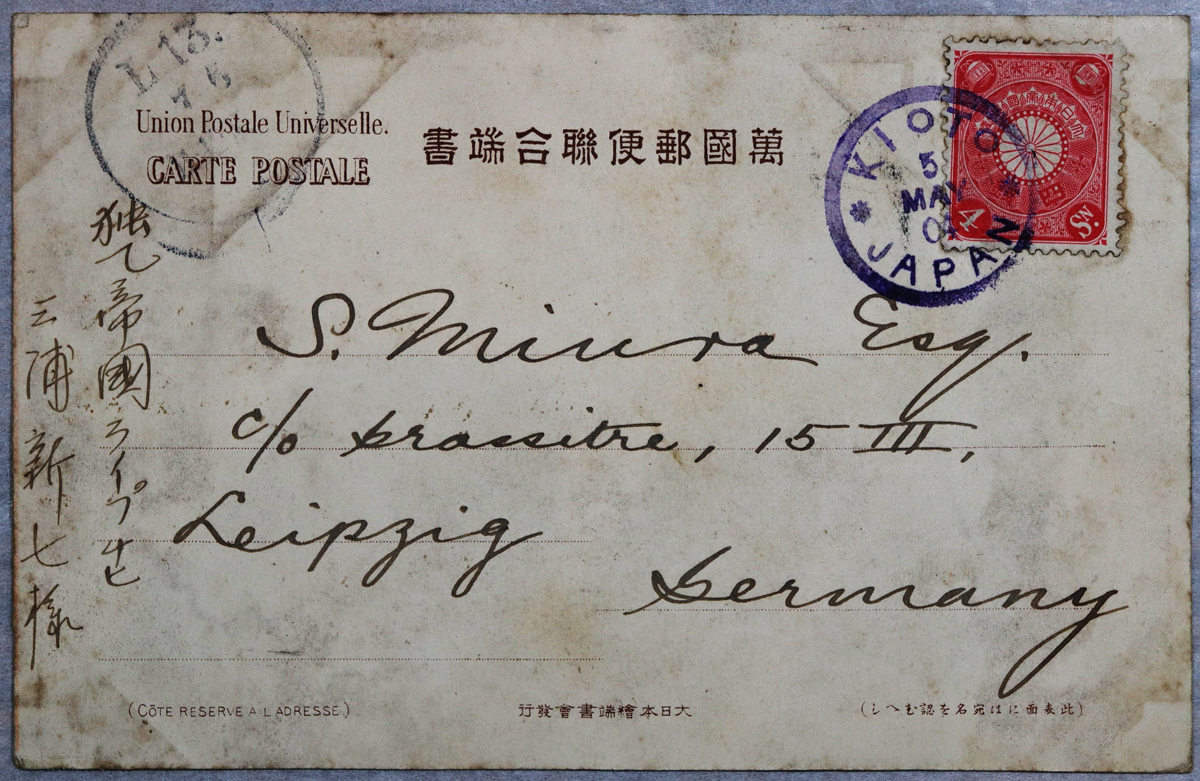 L 13.
7 5
Union Postale Universelle.
CARTE POSTALE
萬國郵便聯合端書
KIOTO
5
MAY
JAPAN
大日本帝國郵便
4 Sn.
S. Miura Esq.
c/o Grassistre, 15 III,
Leipzig
Germany
独乙帝國ライプせヒ
三浦新七様
(CÔTE RESERVE A L'ADRESSE.)
大日本繪端書會發行
(此表面には宛名を認むへし)